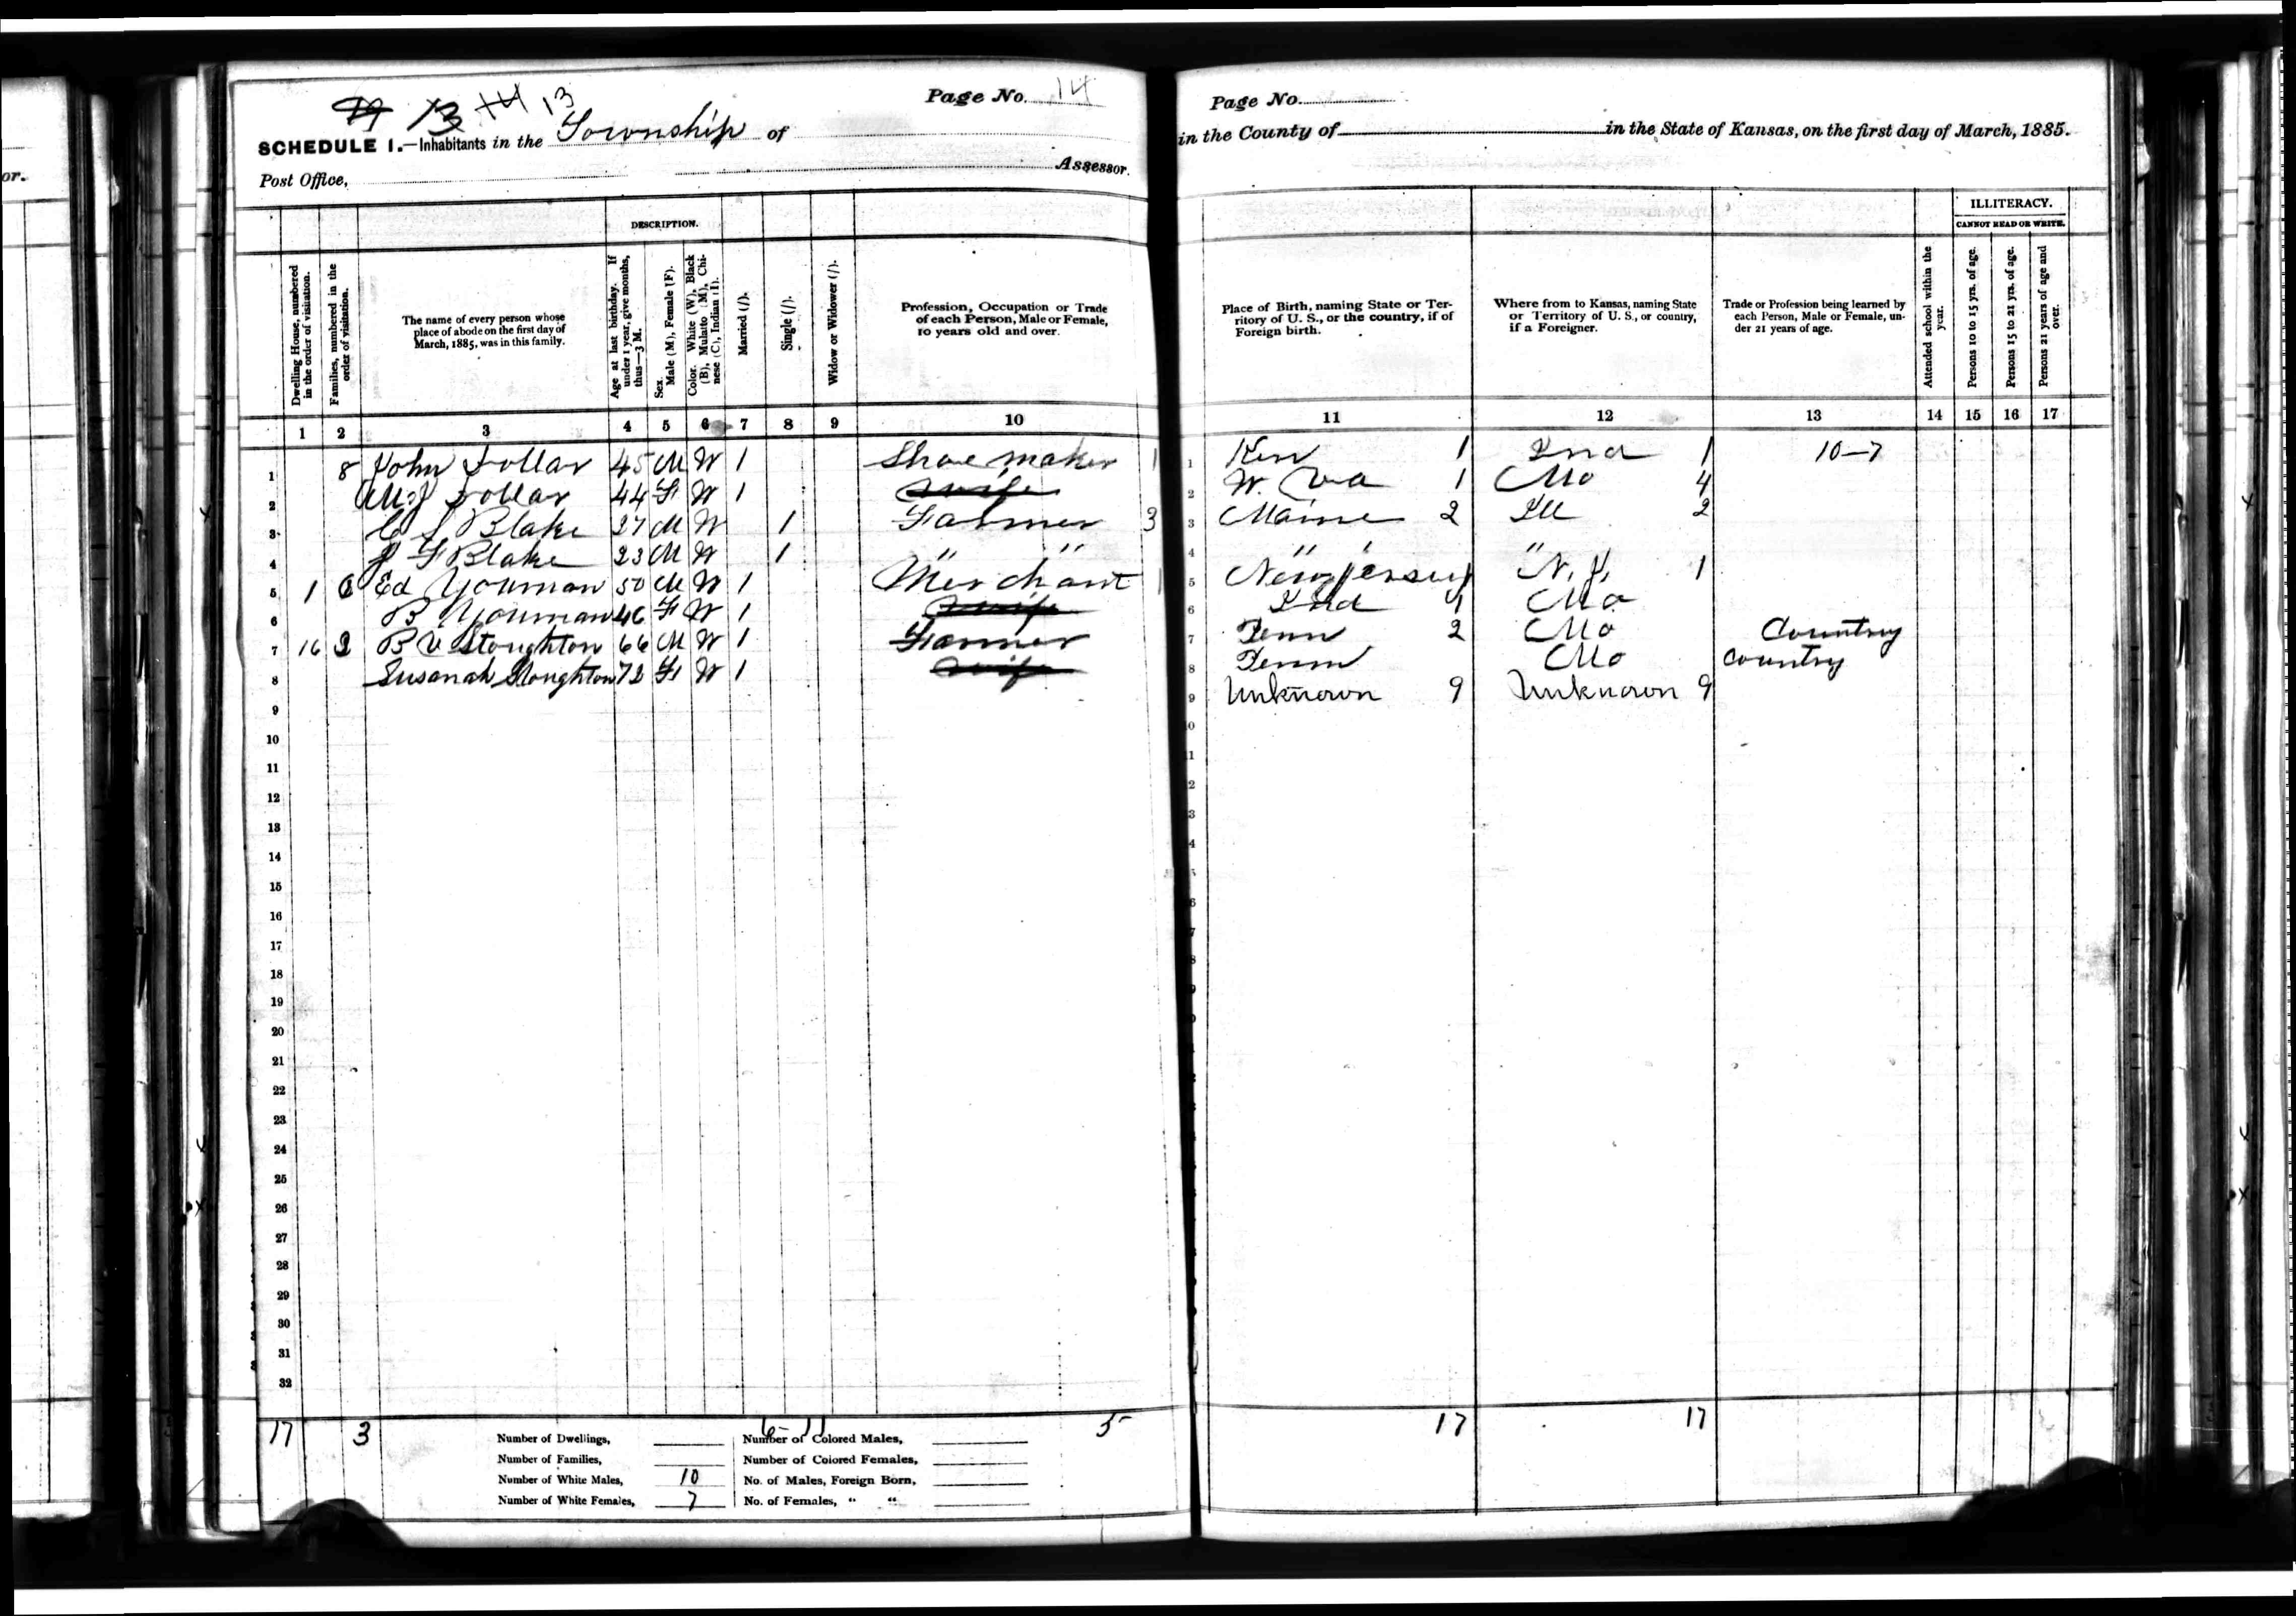 or.
13 14 13
Page No. 14
SCHEDULE 1.—Inhabitants in the Township of
Post Office, Assessor.
Page No.
in the County of in the State of Kansas, on the first day of March, 1885.
DESCRIPTION.
Dwelling House, numbered in the order of visitation.
Families, numbered in the order of visitation.
The name of every person whose place of abode on the first day of March, 1885, was in this family.
Age at last birthday. If under 1 year, give months, thus—3 M.
Sex. Male (M), Female (F).
Color. White (W), Black (B), Mulatto (M), Chinese (C), Indian (I).
Married (/).
Single (/).
Widow or Widower (/).
Profession, Occupation or Trade of each Person, Male or Female, 10 years old and over.
Place of Birth, naming State or Territory of U. S., or the country, if of Foreign birth.
Where from to Kansas, naming State or Territory of U. S., or country, if a Foreigner.
Trade or Profession being learned by each Person, Male or Female, under 21 years of age.
Attended school within the year.
ILLITERACY.
CANNOT READ OR WRITE.
Persons 10 to 15 yrs. of age.
Persons 15 to 21 yrs. of age.
Persons 21 years of age and over.
1 2 3 4 5 6 7 8 9 10 11 12 13 14 15 16 17
1 8 John Dollar 45 M W 1 Shoe maker 1 1 Ken 1 Ind 1 10-7
2 M. J Dollar 44 F W 1 wife 2 W. Va 1 Mo 4
3 C S Blake 27 M W 1 Farmer 3 3 Maine 2 Ill 2
4 J F Blake 23 M W 1 " " 4 " " "
5 1 Ed Youman 50 M W 1 Merchant 1 5 New Jersey N. Y. 1
6 B Youman 46 F W 1 wife 6 Ind 1 Mo
7 16 2 B V Stoughton 66 M W 1 Farmer 7 Penn 2 Mo Country
8 Susanah Stoughton 72 F W 1 wife 8 Penn Mo country
9 9 Unknown 9 Unknown 9
10
11
12
13
14
15
16
17
18
19
20
21
22
23
24
25
26
27
28
29
30
31
32
17 3 6-11 5 17 17
Number of Dwellings, Number of Colored Males,
Number of Families, Number of Colored Females,
Number of White Males, 10 No. of Males, Foreign Born,
Number of White Females, 7 No. of Females, " "